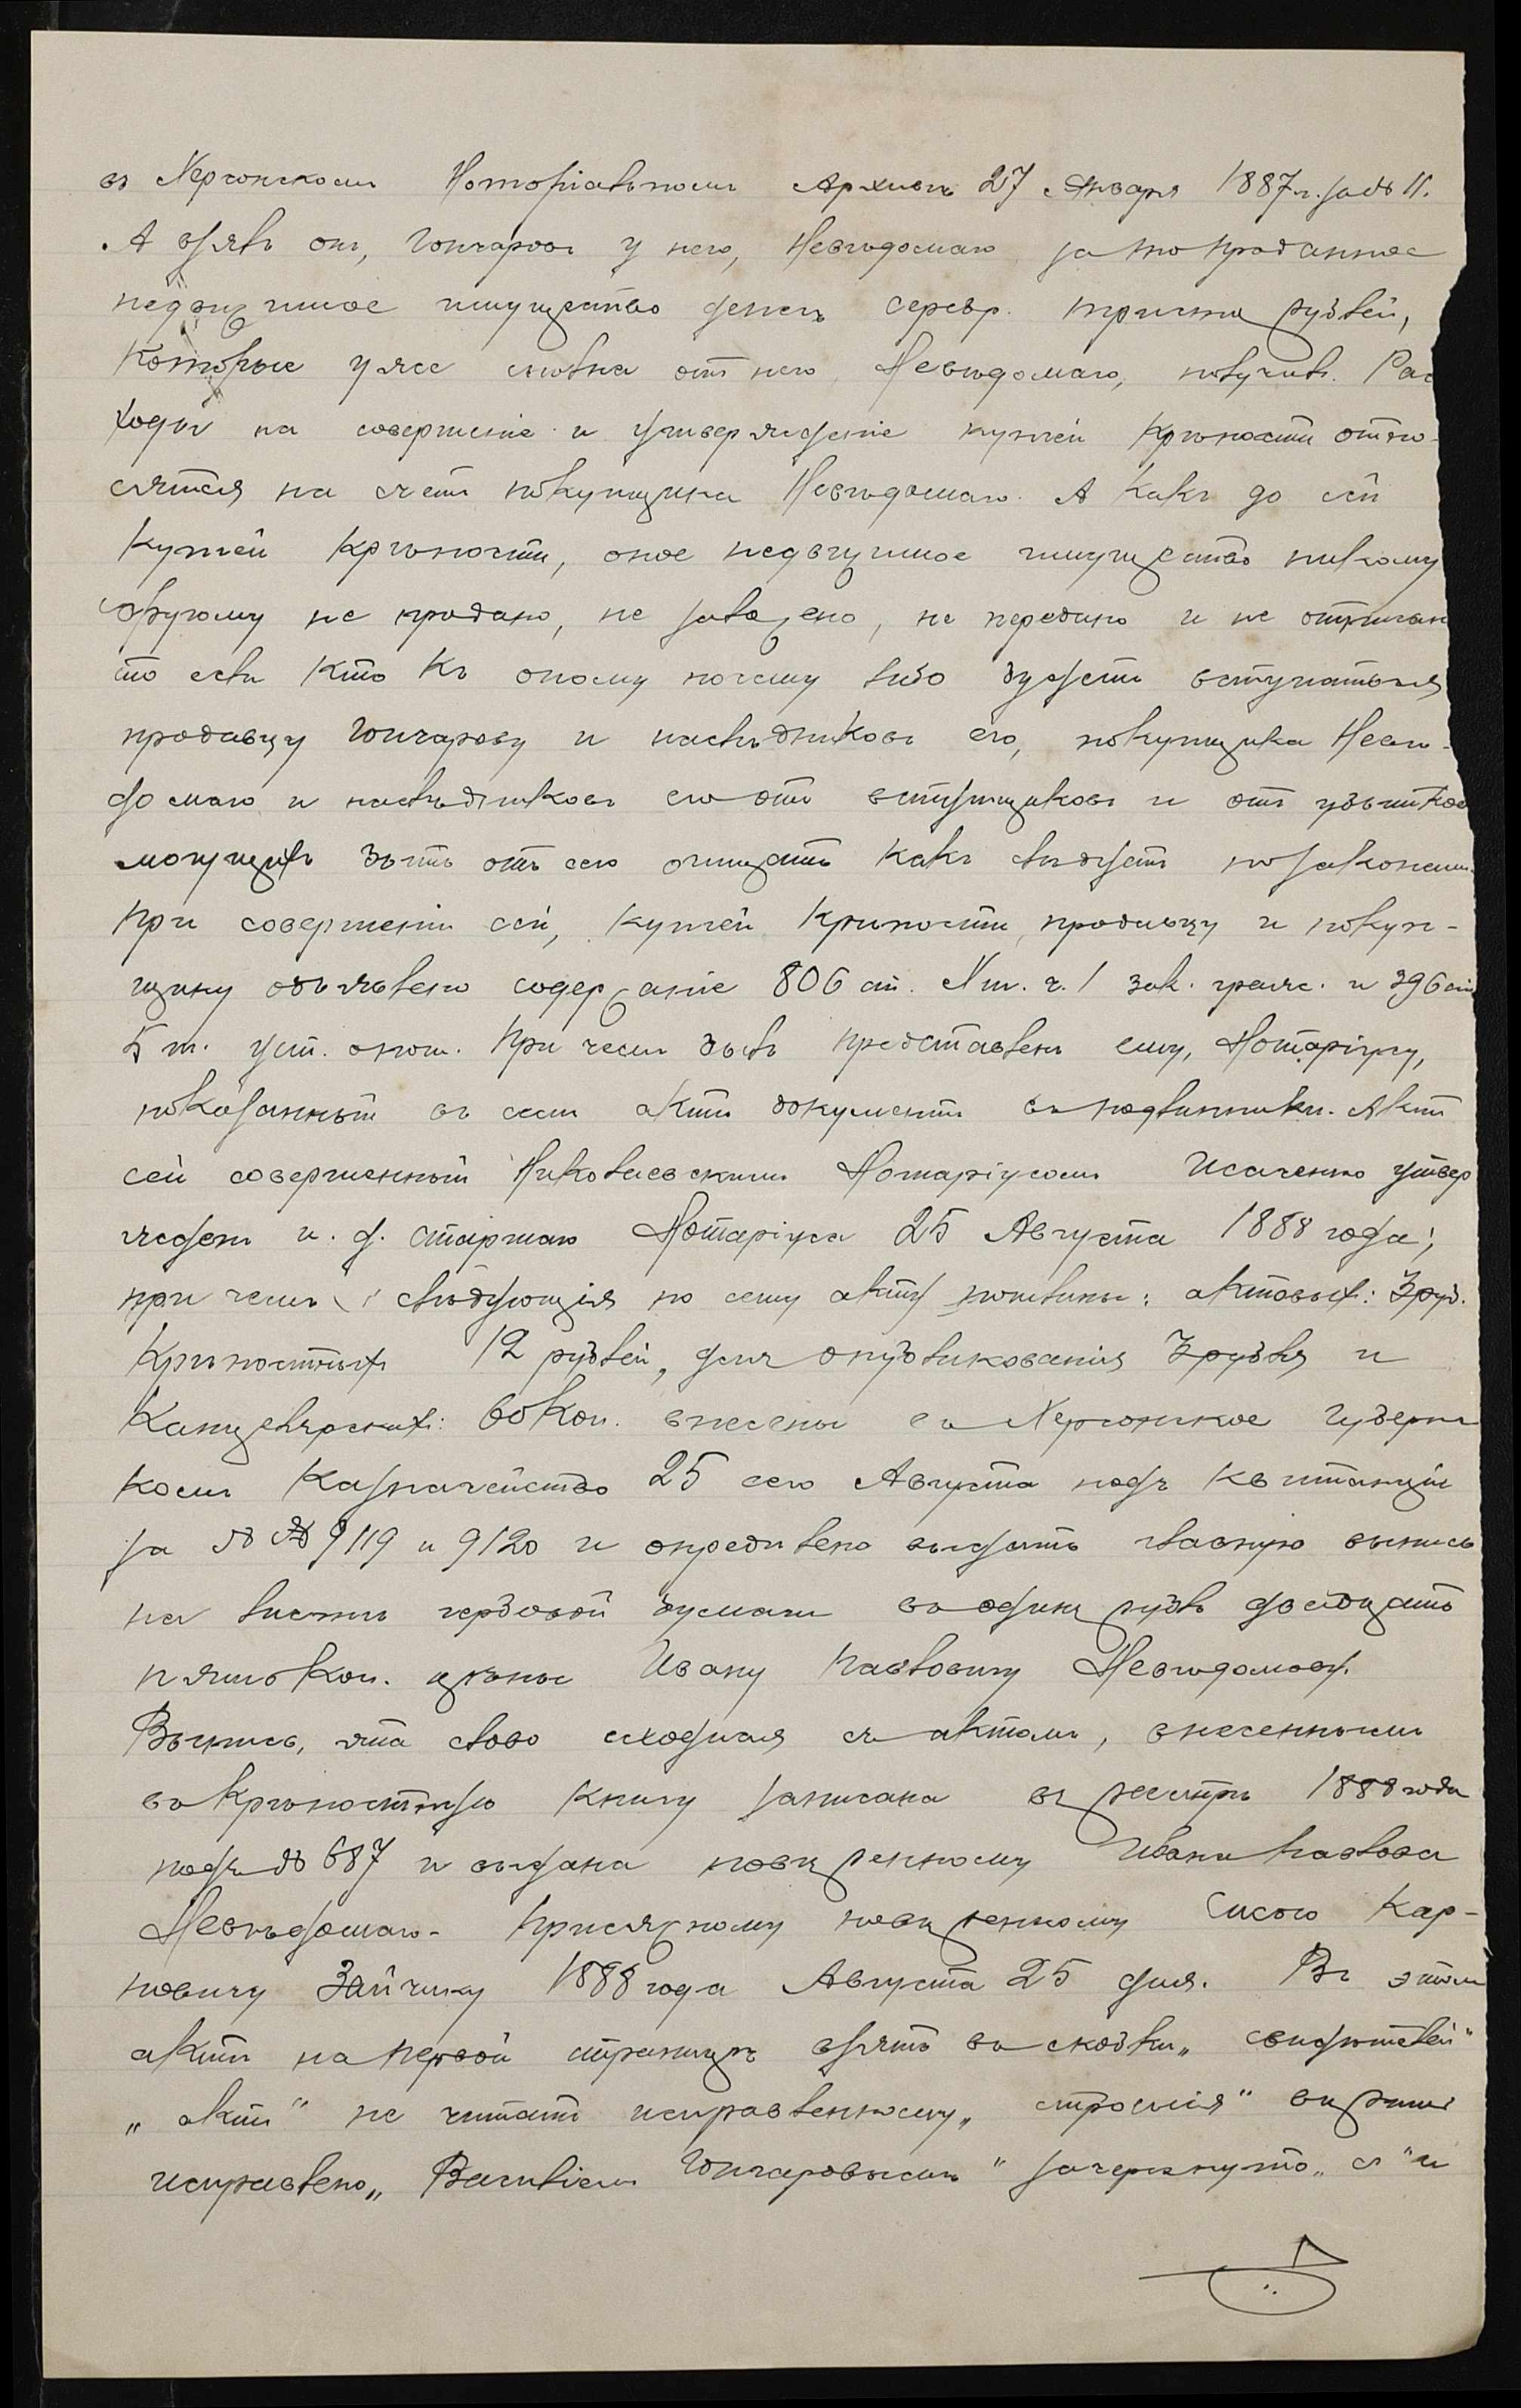 въ Херсонскомъ Нотаріальномъ Архивѣ 27 Января 1887 г. за № 11.
А взялъ онъ, Гончаровъ у него, Невѣдомаго за то проданное
недвижимое имущество денегъ серебр. триста рублей,
которые уже сполна отъ него Невѣдомаго, получилъ. Рас
ходы на совершеніе и утвержденіе купчей крѣпости отно-
сятся на счетъ покупщика Невѣдомаго. А какъ до сей
купчей крѣпости, оное недвижимое имущество никому
другому не продано, не заложено, не передано и не отписан
то если кто къ оному почему либо будетъ вступаться
продавцу Гончарову и наслѣдниковъ его, покупщика Невѣ-
домаго и наслѣдниковъ его отъ вступщиковъ и отъ убытков
могущихъ быть отъ сего очищать какъ слѣдуетъ по законамъ.
При совершеніи сей, купчей крѣпости, продавцу и покуп-
щику объявлено содержаніе 806 ст. X т. ч. 1 зак. гражс. и 396 ст
5 т. уст. опош. При чемъ былъ представленъ ему, Нотаріусу,
показанный въ семъ актѣ документъ въ подлинникѣ. Актъ
сей совершенный Николаевскимъ Нотаріусомъ Исаченко утвер
жденъ и. д. старшаго Нотаріуса 25 Августа 1888 года;
при чемъ слѣдующія по сему акту пошлины: актовыхъ: 3 руб.
Крѣпостныхъ 12 рублей, для опубликованія 3 рубля и
Канцелярскихъ: 60 коп. внесены въ Херсонское Губернс
комъ Казначейство 25 сего Августа подъ квитанціи
за №№ 9119 и 9120 и опредѣлено выдать главную выпись
на листѣ гербовой бумаги въ одинъ рубль двадцать
пять коп. цѣны Ивану Павловичу Невѣдомову.
Выпись, эта слово сходная съ актомъ, внесеннымъ
въ крѣпостную книгу записана въ реестръ 1888 года
подъ № 687 и выдана повѣренному Ивана Павлова
Невѣдомаго - Присяжному повѣренному Сысою Кар-
повичу Зайчику 1888 года Августа 25 дня. Въ этомъ
актѣ на первой страницѣ взять въ скобки „свидѣтелей“
„актъ“ не читать исправленному „строенія“ вѣрить
исправлено „Василіемъ Гончаровымъ“ зачеркнуто „съ“ и